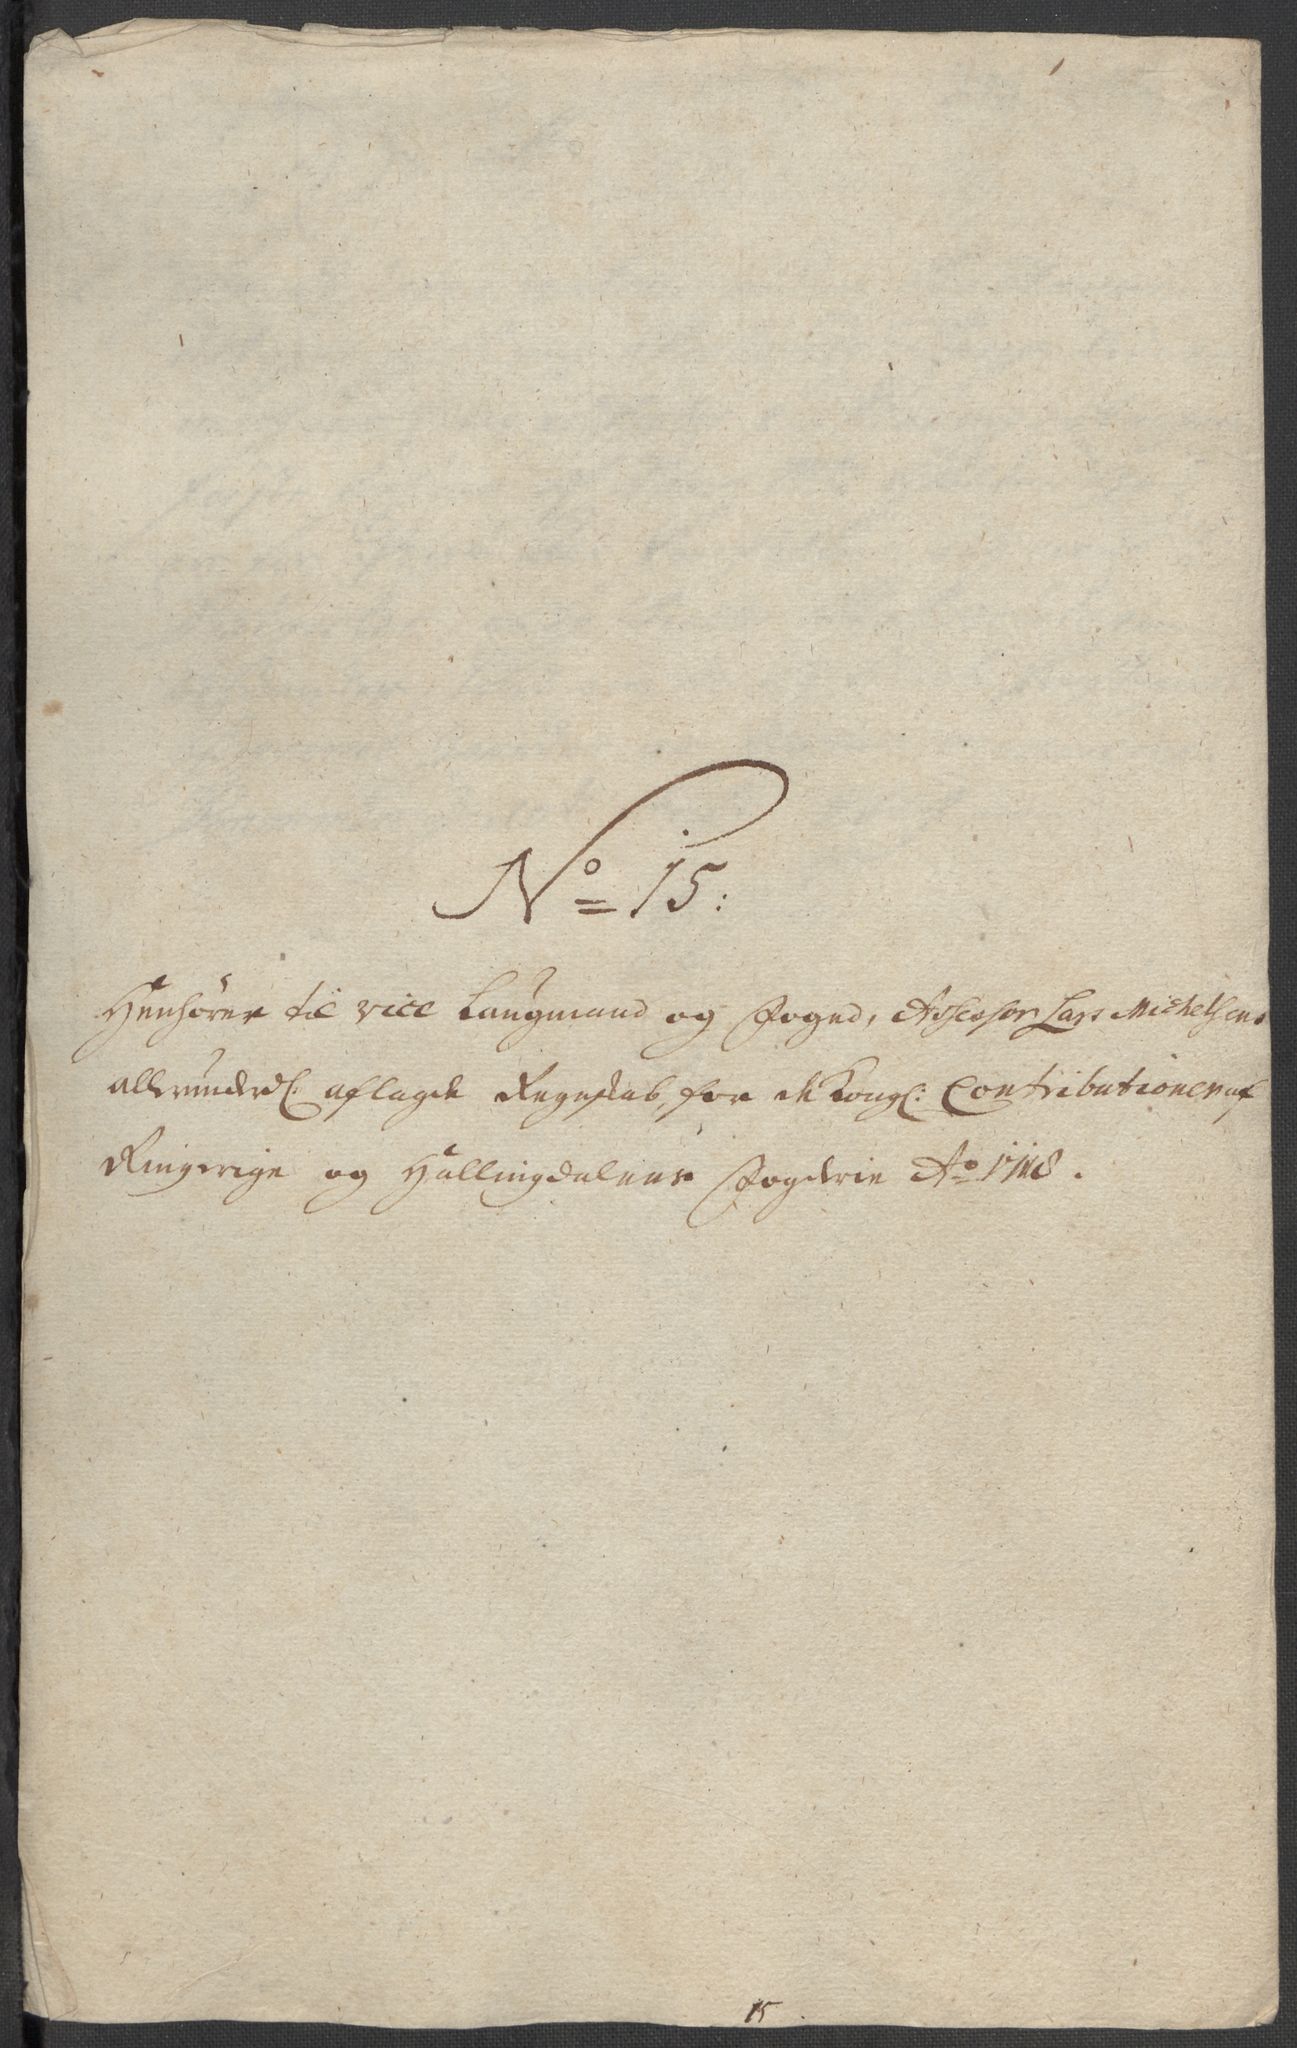 No = 15:
Henhører til vice Laugmand og Foged, Assessor Lars Michelsens
allerunderd: aflagde Regnskab, for de Kongl: Contributioner af
Ringerige og Hallingdalens Fogderie Ao 1718.
15